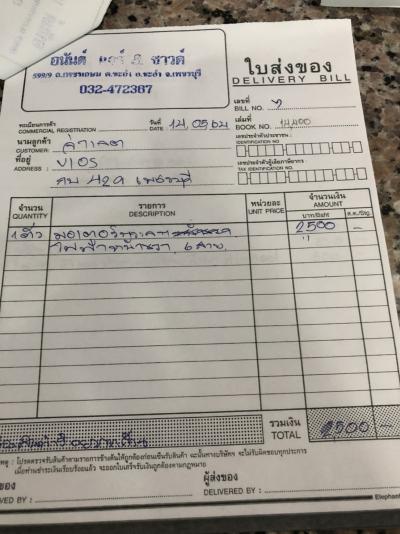 อนันต์ แอร์ & ซาวด์
599/9 ถ.เพชรเกษม ต.ชะอำ อ.ชะอำ จ.เพชรบุรี
032-472367
ใบส่งของ
DELIVERY BILL
เลขที่
BILL NO.
ทะเบียนการค้า
COMMERCIAL REGISTRATION
วันที่
DATE 14, 05, 62
เล่มที่
BOOK NO. 14,400
นามลูกค้า
CUSTOMER:
เลขประจำตัวประชาชน :
IDENTIFICATION NO.
ที่อยู่
ADDRESS : VIOS
เลขประจำตัวผู้เสียภาษีอากร
TAX IDENTIFICATION NO.
429 เพชรบุรี
จำนวน
QUANTITY
รายการ
DESCRIPTION
หน่วยละ
UNIT PRICE
จำนวนเงิน
AMOUNT
บาท/Baht
ส.ต./Stg.
1 ตัว มอเตอร์ 2500 -
ไฟฟ้าหน้าขวา 6 สาย "
รวมเงิน
TOTAL 2500 -
เหตุ : โปรดตรวจรับสินค้าตามรายการข้างต้นให้ถูกต้องก่อนเซ็นรับสินค้า ฉะนั้นทางบริษัทฯ จะไม่รับผิดชอบทุกประการ
เมื่อท่านชำระเงินเรียบร้อยแล้ว จะออกใบเสร็จรับเงินถูกต้องตามกฎหมาย
ของ
ผู้ส่งของ
VED BY :
DELIVERED BY :
Elephant